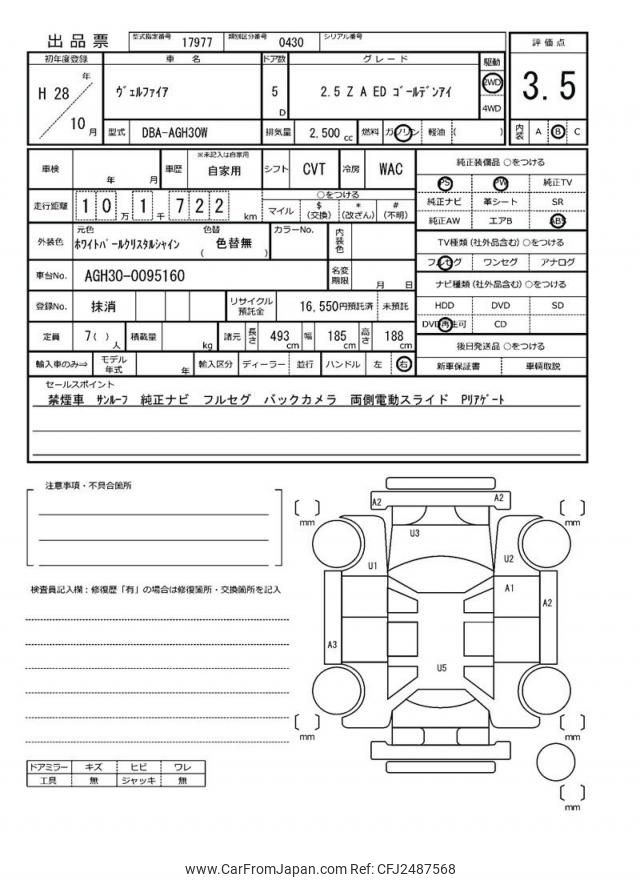 出品票 型式指定番号 17977 類別区分番号 0430 シリアル番号
評価点
3.5
内装 A B C
初年度登録 車名 ドア数 グレード 駆動
H 28 年 10 月
ヴェルファイア 5 D 2.5 Z A ED ゴールデンアイ 2WD 4WD
型式 DBA-AGH30W 排気量 2,500 cc 燃料 ガソリン 軽油 ( )
車検 年 月 車歴 ※未記入は自家用 自家用 シフト CVT 冷房 WAC
走行距離 1 0 万 1 千 7 2 2 km ○をつける マイル $ (交換) * (改ざん) # (不明)
外装色 元色 ホワイトパールクリスタルシャイン 色替 ( 色替無 ) カラーNo. 内装色
車台No. AGH30-0095160 名変期限 月 日
登録No. 抹消 リサイクル預託金 16,550円預託済 未預託
定員 7( )人 積載量 kg 諸元 長さ 493 cm 幅 185 cm 高さ 188 cm
輸入車のみ⇒ モデル年式 年 輸入区分 ディーラー 並行 ハンドル 左 右
純正装備品 ○をつける
PS PW 純正TV
純正ナビ 革シート SR
純正AW エアB ABS
TV種類 (社外品含む) ○をつける
フルセグ ワンセグ アナログ
ナビ種類 (社外品含む) ○をつける
HDD DVD SD
DVD再生可 CD
後日発送品 ○をつける
新車保証書 車輌取説
セールスポイント
禁煙車 サンルーフ 純正ナビ フルセグ バックカメラ 両側電動スライド Pリアゲート
注意事項・不具合箇所
検査員記入欄：修復歴「有」の場合は修復箇所・交換箇所を記入
ドアミラー キズ ヒビ ワレ
工具 無 ジャッキ 無
A2 A2
mm mm
U3
U1 U2
A1 A2
A3
U5
mm mm
mm
www.CarFromJapan.com Ref: CFJ2487568